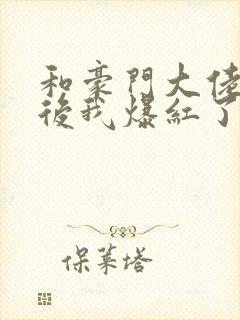 和豪門大佬
後我爆紅了
保萊塔